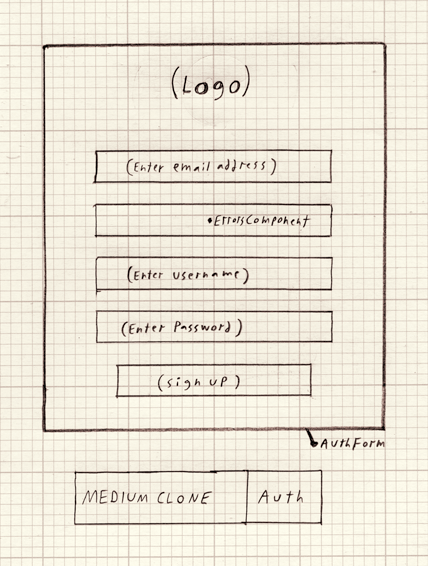 (Logo)
(Enter email address)
•ErrorsComponent
(Enter username)
(Enter Password)
(sign up)
AuthForm
MEDIUM CLONE
Auth